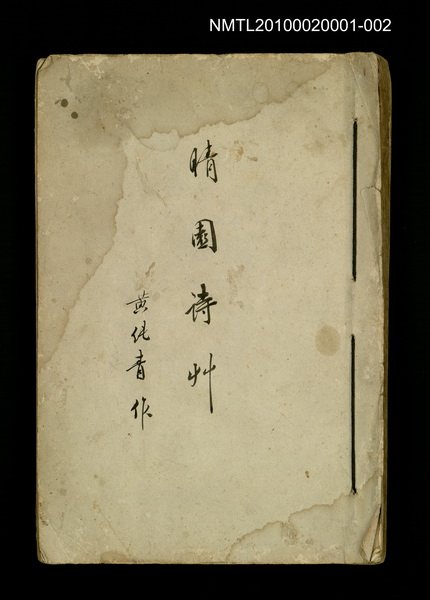 NMTL20100020001-002
晴園詩艸
黃純青作